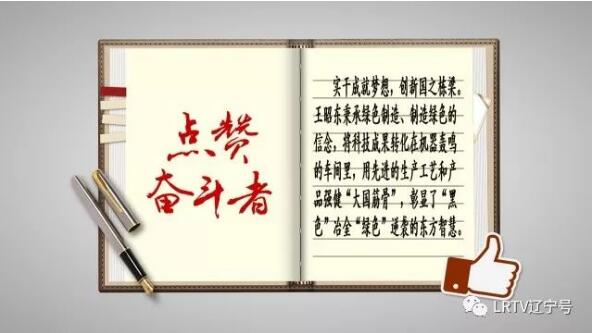 点赞
奋斗者
实干成就梦想，创新国之栋梁。
王昭东秉承绿色制造、制造绿色的
信念，将科技成果转化在机器轰鸣
的车间里，用先进的生产工艺和产
品强健“大国筋骨”，彰显了“黑
色”冶金“绿色”逆袭的东方智慧。
LRTV辽宁号